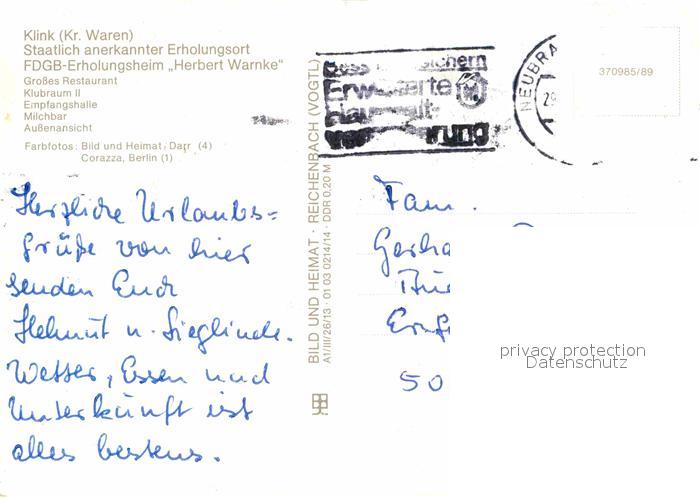 Klink (Kr. Waren)
Staatlich anerkannter Erholungsort
FDGB-Erholungsheim „Herbert Warnke“
Großes Restaurant
Klubraum II
Empfangshalle
Milchbar
Außenansicht
Farbfotos: Bild und Heimat, Darr (4)
Corazza, Berlin (1)
Herzliche Urlaubs=
grüße von hier
senden Euch
Helmut u. Sieglinde.
Wetter, Essen und
Unterkunft ist
alles bestens.
BILD UND HEIMAT · REICHENBACH (VOGTL)
A1/III/26/13 · 01 03 0214/14 · DDR 0,20 M
Erweiterte
Haushalt-
NEUBRA
29
370985/89
Fam.
Gerha
Erf
50
privacy protection
Datenschutz